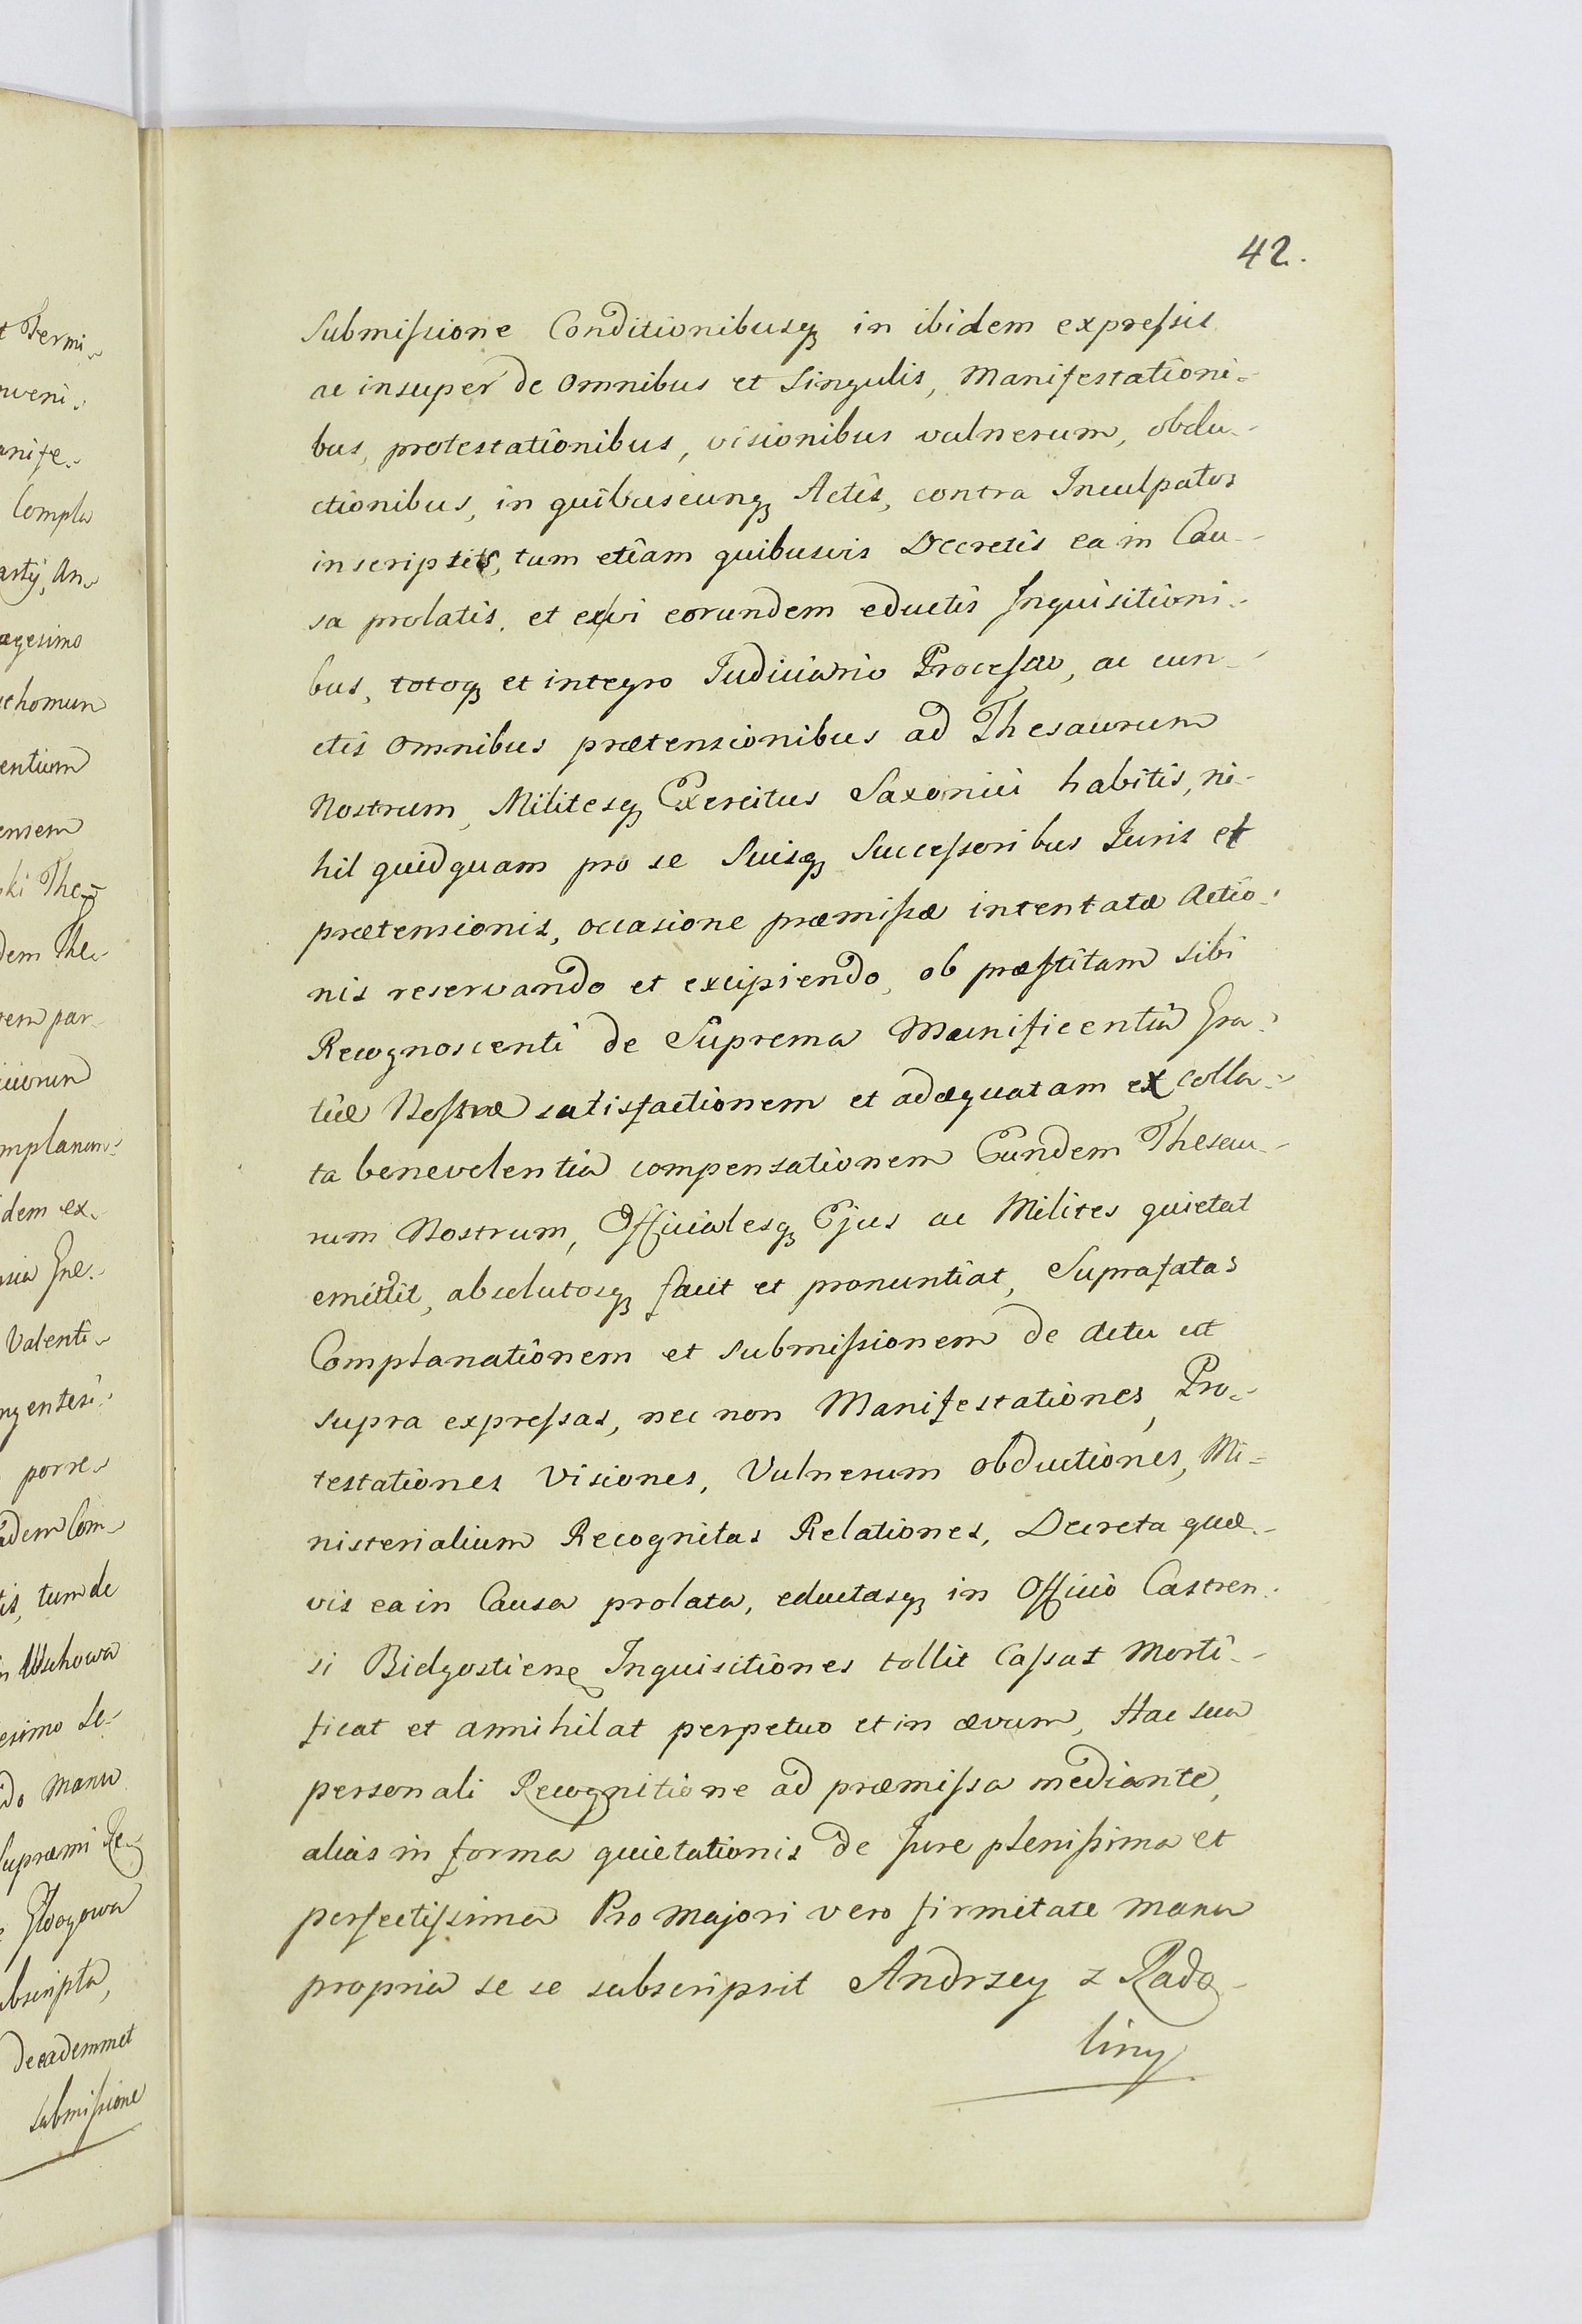 42.
Submiſsione Conditionibusqꝫ in ibidem expreſsis
ac insuper de omnibus et Singulis, Manifestationi-
bus, protestationibus, visionibus vulnerum, obdu-
ctionibus, in quibuscunqꝫ Actis, contra Inculpatos
inscriptis, tum etiam quibusvis Decretis ea in Cau-
sa prolatis, et exvi eorundem eductis Inquisitioni-
bus, totoqꝫ et integro Judiciario Proceſsu, ac cun-
ctis omnibus prætensionibus ad Thesaurum
Nostrum, Militesqꝫ Exercitus Saxonici habitis, ni-
hil quidquam pro se Suisqꝫ Succeſsoribus Juris et
prætensionis, occasione præmiſsæ intentatæ Actio-
nis reservando et excipiendo, ob præſtitam sibi
Recognoscenti de Suprema Munificentia Gra-
tiæ Noſtræ satisfactionem et adæquatam ex colla-
ta benevolentia compensationem Eundem Thesau-
rum Nostrum, Officialesqꝫ Ejus ac Milites quietat
emittit, absolutosqꝫ facit et pronuntiat, Suprafatas
Complanationem et submiſsionem de actu ut
supra expreſsas, nec non Manifestationes, Pro-
testationes Visiones, Vulnerum obductiones, Mi-
nisterialium Recognitas Relationes, Decreta quæ-
vis ea in Causa prolata, eductasqꝫ in Officio Castren-
si Bidgostiensę Inquisitiones tollit Caſsat Morti-
ficat et annihilat perpetuo et in ævum, Hac sua
personali Recognitione ad præmiſsa mediante,
alias in forma quietationis de Jure pleniſsima et
perfectiſsima Pro majori vero firmitate manu
propria se se subscripsit Andrzey z Rado-
liny